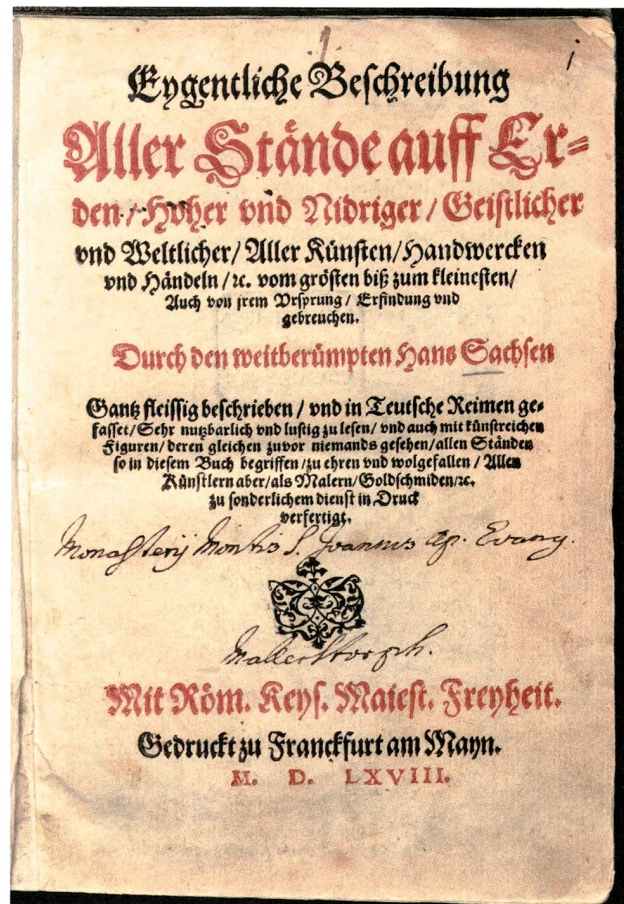 i
Eygentliche Beschreibung
Aller Stände auff Er-
den / Hoher vnd Nidriger / Geistlicher
vnd Weltlicher / Aller Künsten / Handwercken
vnd Händeln / ꝛc. vom grösten biß zum kleinesten /
Auch von jrem Vrsprung / Erfindung vnd
gebreuchen.
Durch den weitberümpten Hans Sachsen
Gantz fleissig beschrieben / vnd in Teutsche Reimen ge-
fasset / Sehr nutzbarlich vnd lustig zu lesen / vnd auch mit künstreichen
Figuren / deren gleichen zuvor niemands gesehen / allen Ständen
so in diesem Buch begriffen / zu ehren vnd wolgefallen / Allen
Künstlern aber / als Malern / Goldschmiden / ꝛc.
zu sonderlichem dienst in Druck
verfertigt.
Monasterij Montis S. Joannis Ap. Evang.
Mallerstorph.
Mit Röm. Keys. Maiest. Freyheit.
Gedruckt zu Franckfurt am Mayn.
M. D. LXVIII.